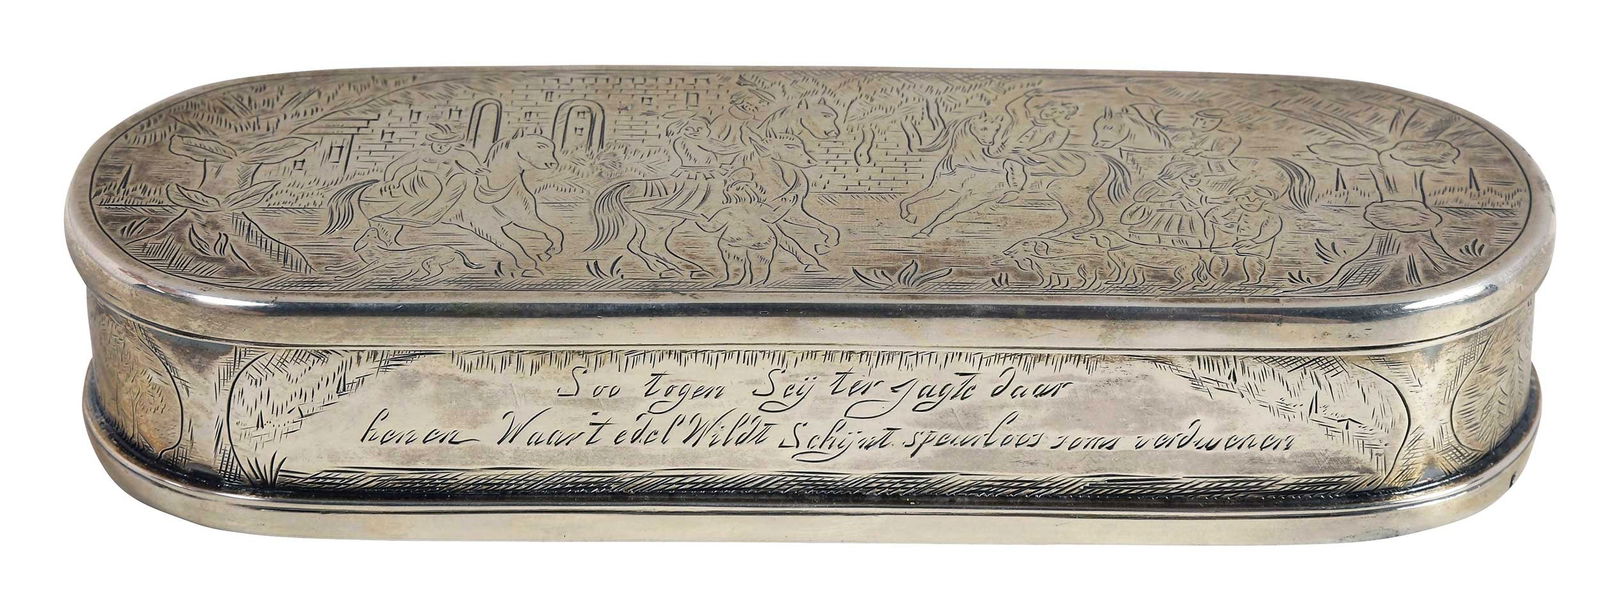 Soo togen Seij ter jagte daar
henen Waar't edel Wildt Schijnt speurloos soms verdwenen